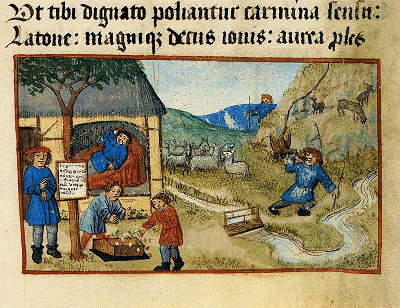 Ut tibi dignato poliantur carmina sensu:
Latone: magniqꝫ decus iouis: aurea ꝓles